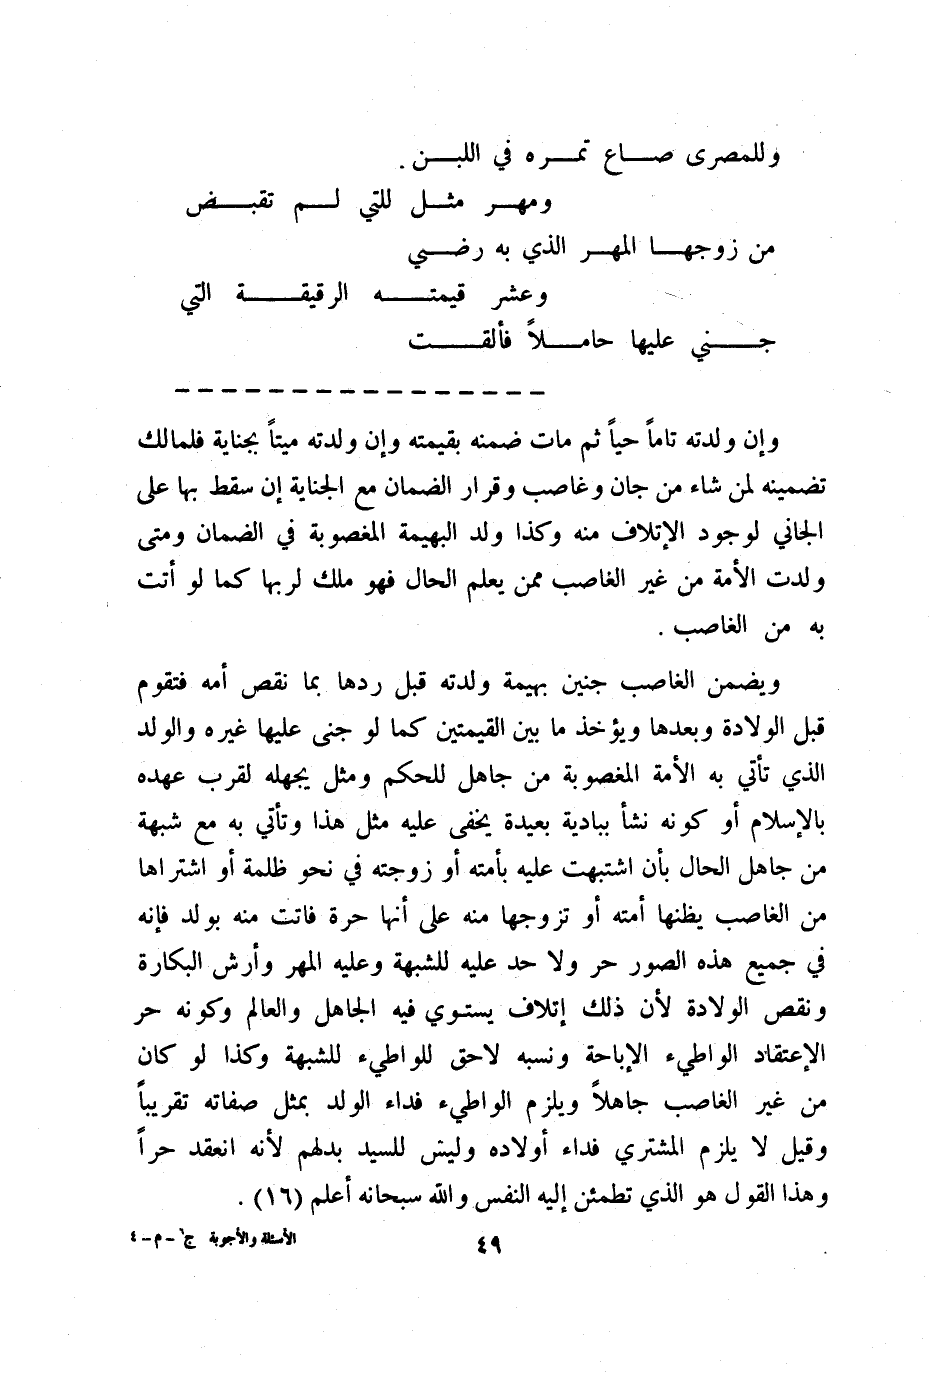 وللمصرى صاع تمره في اللبن .
ومهر مثل للتي لم تقبض
من زوجها المهر الذي به رضي
وعشر قيمته الرقيقة التي
جني عليها حاملاً فألقت
وإن ولدته تاماً حياً ثم مات ضمنه بقيمته وإن ولدته ميتاً بجناية فلمالك
تضمينه لمن شاء من جان وغاصب وقرار الضمان مع الجناية إن سقط بها على
الجاني لوجود الإتلاف منه وكذا ولد البهيمة المغصوبة في الضمان ومتى
ولدت الأمة من غير الغاصب ممن يعلم الحال فهو ملك لربها كما لو أتت
به من الغاصب .
ويضمن الغاصب جنين بهيمة ولدته قبل ردها بما نقص أمه فتقوم
قبل الولادة وبعدها ويؤخذ ما بين القيمتين كما لو جنى عليها غيره والولد
الذي تأتي به الأمة المغصوبة من جاهل للحكم ومثل يجهله لقرب عهده
بالإسلام أو كونه نشأ ببادية بعيدة يخفى عليه مثل هذا وتأتي به مع شبهة
من جاهل الحال بأن اشتبهت عليه بأمته أو زوجته في نحو ظلمة أو اشتراها
من الغاصب يظنها أمته أو تزوجها منه على أنها حرة فاتت منه بولد فإنه
في جميع هذه الصور حر ولا حد عليه للشبهة وعليه المهر وأرش البكارة
ونقص الولادة لأن ذلك إتلاف يستوي فيه الجاهل والعالم وكونه حر
الإعتقاد الواطيء الإباحة ونسبه لاحق للواطيء للشبهة وكذا لو كان
من غير الغاصب جاهلاً ويلزم الواطيء فداء الولد بمثل صفاته تقريباً
وقيل لا يلزم المشتري فداء أولاده وليس للسيد بدلهم لأنه انعقد حراً
وهذا القول هو الذي تطمئن إليه النفس والله سبحانه أعلم (١٦) .
٤٩
الأسئلة والأجوبة ج١ - م - ٤